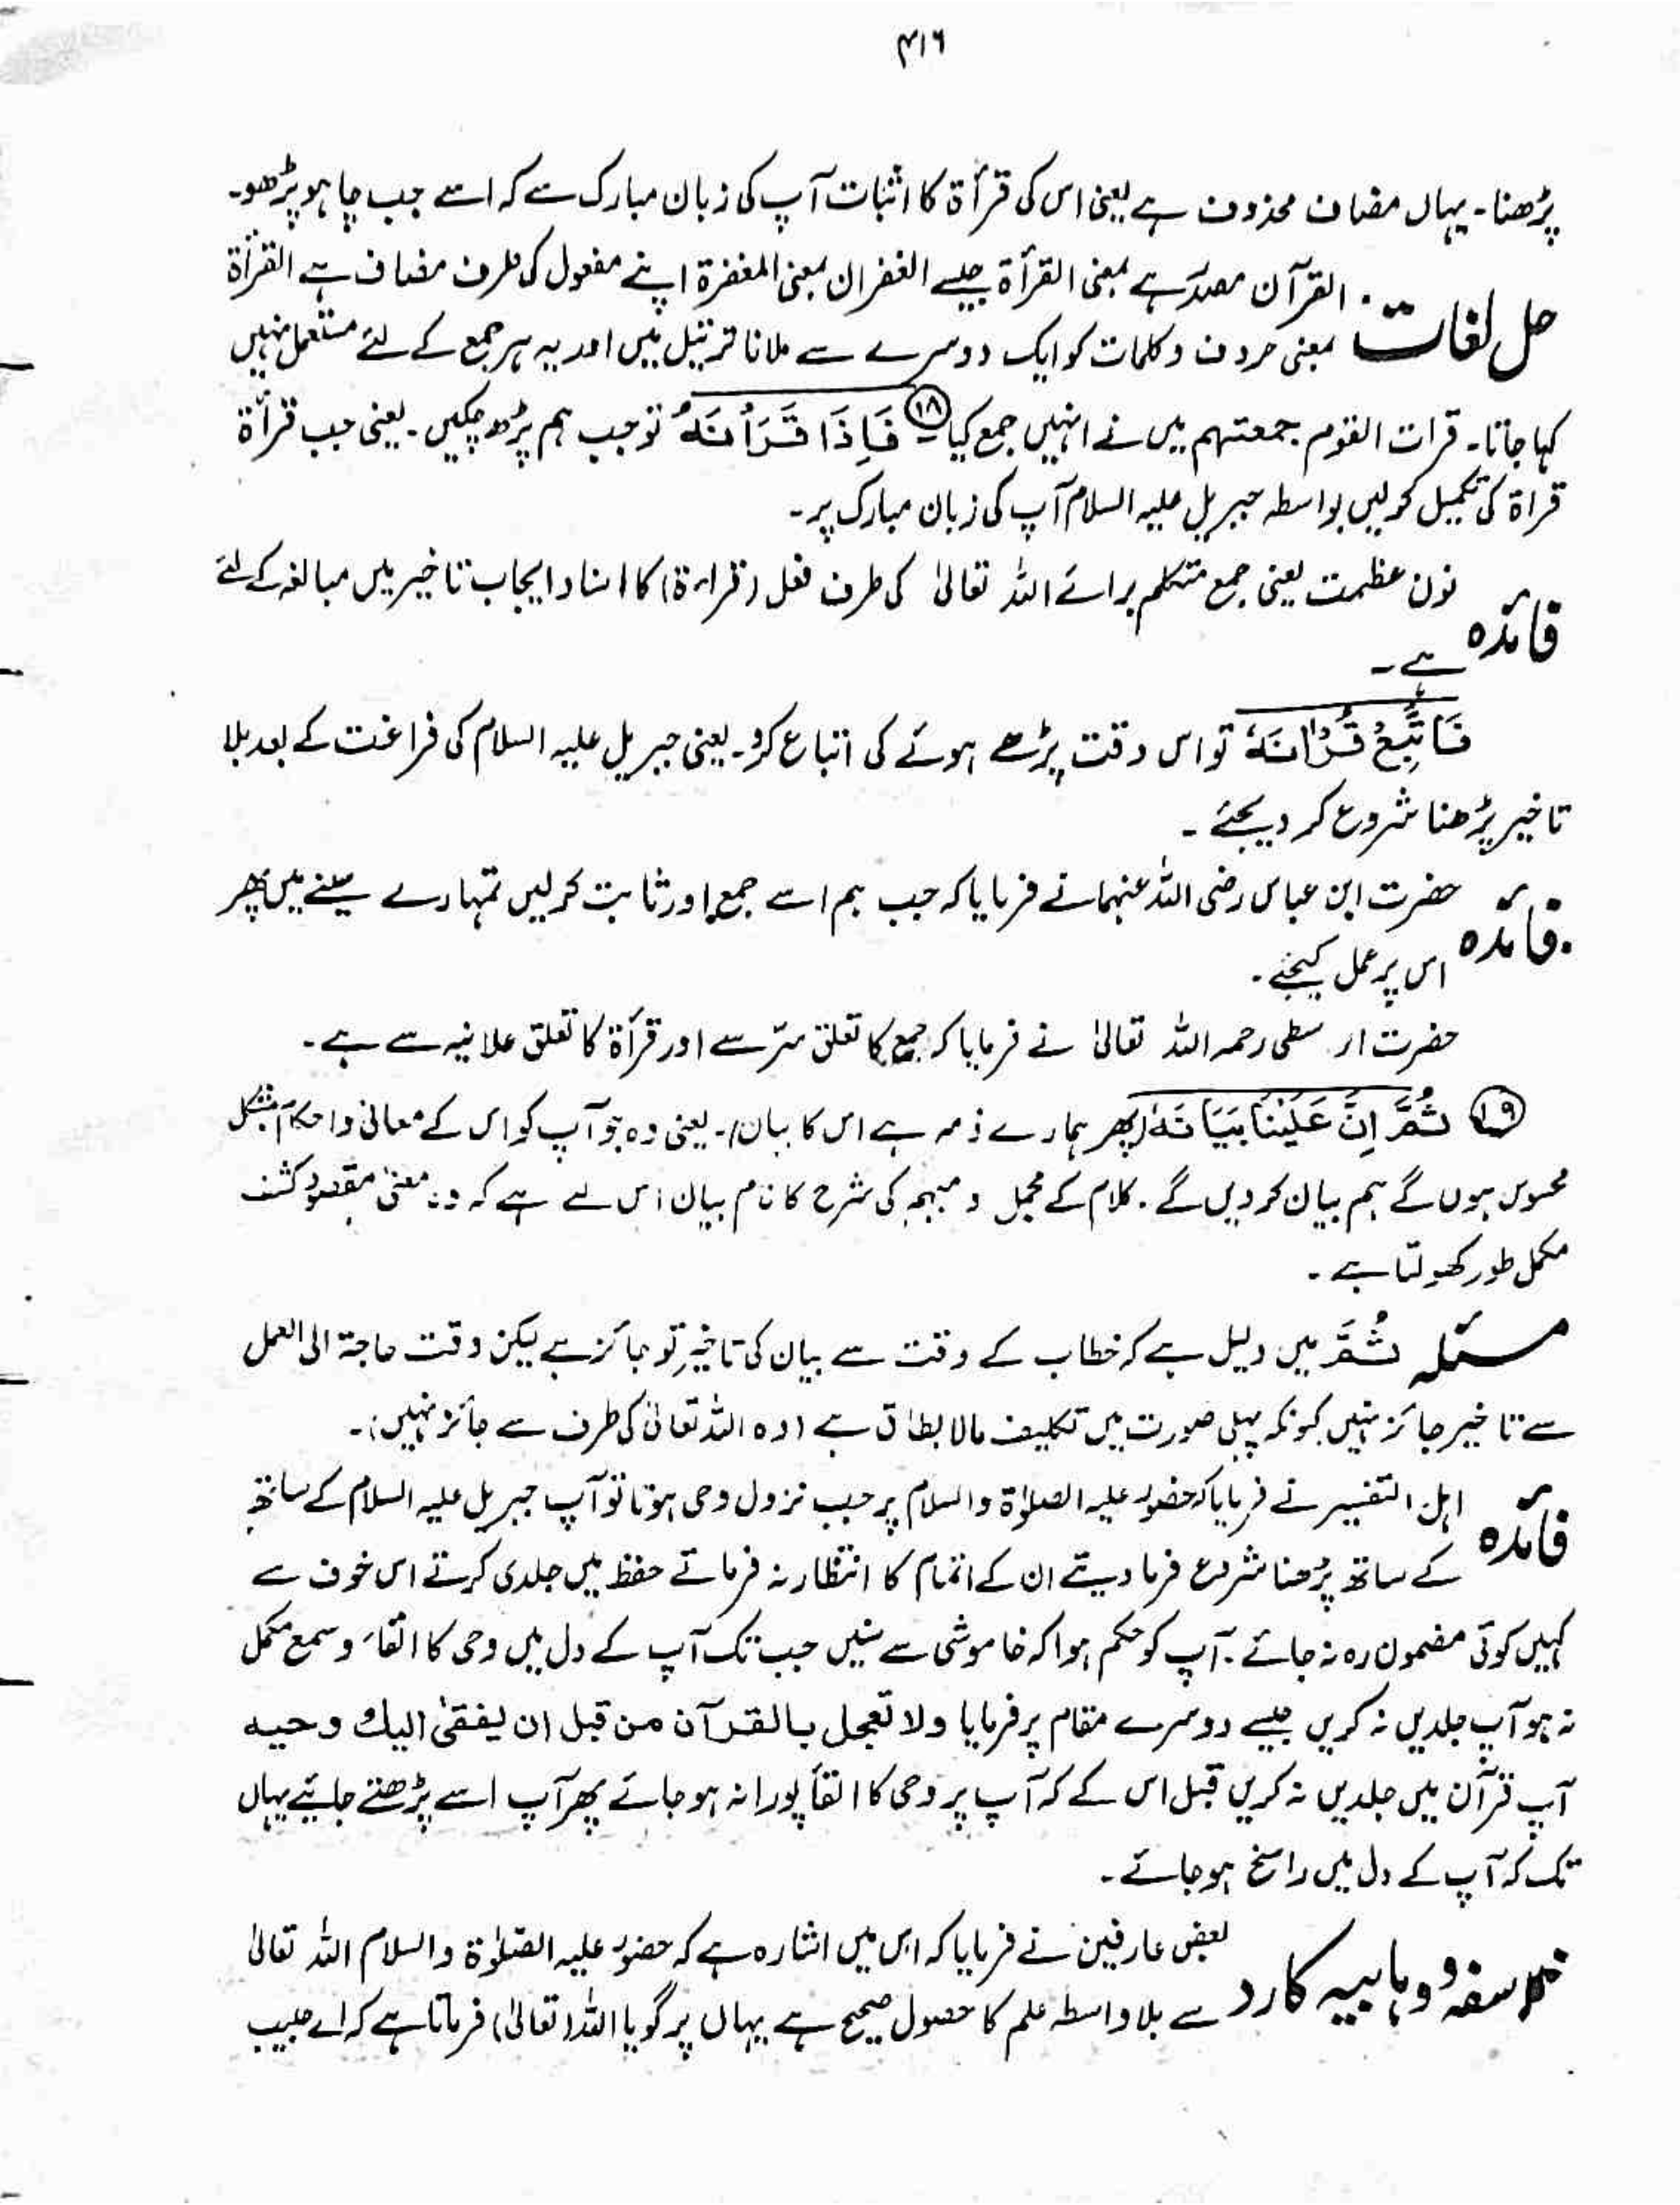 ۴۱۶
پڑھنا۔ یہاں مضاف محذوف ہے یعنی اس کی قرأۃ کا اثبات آپ کی زبان مبارک سے کہ اسے جب چاہو پڑھو۔
حل لغات: القرآن مصدر ہے بمعنی القرأۃ جیسے الغفران بمعنی المغفرۃ اپنے مفعول کی طرف مضاف ہے القرأۃ
بمعنی حروف و کلمات کو ایک دوسرے سے ملانا ترتیل میں اور یہ ہر جمع کے لئے مستعمل نہیں
کہا جاتا۔ قرات القوم جمعتہم میں نے انہیں جمع کیا۔ ⑱ فَاِذَا قَرَأْنٰہُ تو جب ہم پڑھ چکیں۔ یعنی جب قرأۃ
قراۃ کی تکمیل کرلیں بواسطہ جبریل علیہ السلام آپ کی زبان مبارک پر۔
فائدہ نون عظمت یعنی جمع متکلم برائے اللہ تعالیٰ کی طرف فعل (قراءۃ) کا اسناد ایجاب تاخیر میں مبالغہ کے لئے
ہے۔
فَاتَّبِعْ قُرْاٰنَہٗ تو اس وقت پڑھے ہوئے کی اتباع کرو۔ یعنی جبریل علیہ السلام کی فراغت کے بعد بلا
تاخیر پڑھنا شروع کر دیجئے۔
فائدہ حضرت ابن عباس رضی اللہ عنہما نے فرمایا کہ جب ہم اسے جمع اور ثابت کرلیں تمہارے سینے میں پھر
اس پر عمل کیجئے۔
حضرت سطی رحمہ اللہ تعالیٰ نے فرمایا کہ جمع کا تعلق سرّ سے اور قرأۃ کا تعلق علانیہ سے ہے۔
⑲ ثُمَّ اِنَّ عَلَیْنَا بَیَانَہٗ (پھر ہمارے ذمہ ہے اس کا بیان)۔ یعنی وہ جو آپ کو اس کے معانی و احکام مشکل
محسوس ہوں گے ہم بیان کر دیں گے۔ کلام کے مجمل و مبہم کی شرح کا نام بیان اس لے ہے کہ وہ معنیٰ مقصود کشف
مکمل طور کھولتا ہے۔
مسئلہ ثُمَّ میں دلیل ہے کہ خطاب کے وقت سے بیان کی تاخیر تو جائز ہے لیکن وقت حاجۃ الی العمل
سے تاخیر جائز نہیں کیونکہ پہلی صورت میں تکلیف مالا یطاق ہے (وہ اللہ تعالیٰ کی طرف سے جائز نہیں)۔
فائدہ اہل التفسیر نے فرمایا کہ حضور علیہ الصلوٰۃ والسلام پر جب نزول وحی ہوتا تو آپ جبریل علیہ السلام کے ساتھ
کے ساتھ پڑھنا شروع فرما دیتے ان کے اتمام کا انتظار نہ فرماتے حفظ میں جلدی کرتے اس خوف سے
کہیں کوئی مضمون رہ نہ جائے۔ آپ کو حکم ہوا کہ خاموشی سے سنیں جب تک آپ کے دل میں وحی کا القاء و سمع مکمل
نہ ہو آپ جلدیں نہ کریں جیسے دوسرے مقام پر فرمایا ولا تعجل بالقرآن من قبل ان یفقیٰ الیك وحیہ
آپ قرآن میں جلدیں نہ کریں قبل اس کے کہ آپ پر وحی کا القأ پورا نہ ہو جائے پھر آپ اسے پڑھتے جائیے یہاں
تک کہ آپ کے دل میں راسخ ہوجائے۔
فلاسفہ و وہابیہ کا رد بعض عارفین نے فرمایا کہ اس میں اشارہ ہے کہ حضور علیہ الصلوٰۃ والسلام اللہ تعالیٰ
سے بلا واسطہ علم کا حصول صحیح ہے یہاں پر گویا اللہ (تعالیٰ) فرماتا ہے کہ اے حبیب